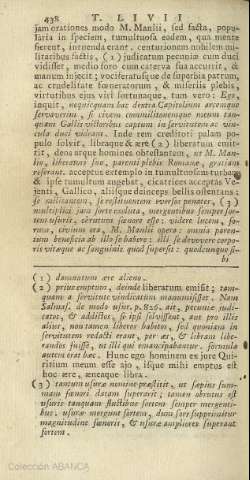 438 T. LIVII
jam orationes modo M. Manlii, sed facta, popu-
laria in speciem, tumultuosa eodem, qua mente
fierent, intuenda erant. centurionem nobilem mi-
litaribus factis, (1) judicatum pecuniæ cum duci
vidisset, medio foro cum caterva sua accurrit, &
manum injecit; vociferatusque de superbia patrum,
ac crudelitate fœneratorum, & miseriis plebis,
virtutibus ejus viri fortunaque, tum vero: Ego,
inquit, nequicquam hac dextra Capitolium arcemque
servaverim, si civem commilitonemque meum tan-
quam Gallis victoribus captum in servitutem ac vin-
cula duci videam. Inde rem creditori palam po-
pulo solvit, libraque & ære (2) liberatum emit-
tit, deos atque homines obtestantem, ut M. Man-
lio, liberatori suo, parenti plebis Romanæ, gratiam
referant. acceptus extemplo in tumultuosam turbam,
& ipse tumultum augebat, cicatrices acceptas Ve-
jenti, Gallico, aliisque deinceps bellis ostentans:
se militantem, se restituentem eversos penates, (3)
multiplici jam sorte exsoluta, mergentibus semper sor-
tem usuris, obrutum fœnore esse: videre lucem, fo-
rum, civium ora, M. Manlii opera: omnia paren-
tum beneficia ab illo se habere: illi se devovere corpo-
ris vitæque ac sanguinis quid supersit: quodcunque si-
bi
(1) damnatum ære alieno.
(2) prius emptum, deinde liberatum emisit; tam-
quam a servitute vindicatum manumisisset. Nam
Salmas. de modo usur. p. 826. ait, pecuniæ judi-
catos, & addictos, si ipsi solvissent, aut pro illis
alius, non tamen liberos habitos, sed quoniam in
servitutem redacti erant, per æs, & libram libe-
randos fuisse, ut illi qui emancipabantur. formula
autem erat hæc. Hunc ego hominem ex jure Qui-
ritium meum esse ajo, isque mihi emptus est
hoc ære, æneaque libra.
(3) tantum usuræ nomine præstitit, ut sæpius sum-
mam fœnori datam superarit; tamen obrutus est
usuris tanquam fluctibus sortem semper mergenti-
bus. usuræ mergunt sortem, dum sors supprimitur
magnitudine fœnoris, & usuræ ampliores superant
sortem.
Colección ABANCA